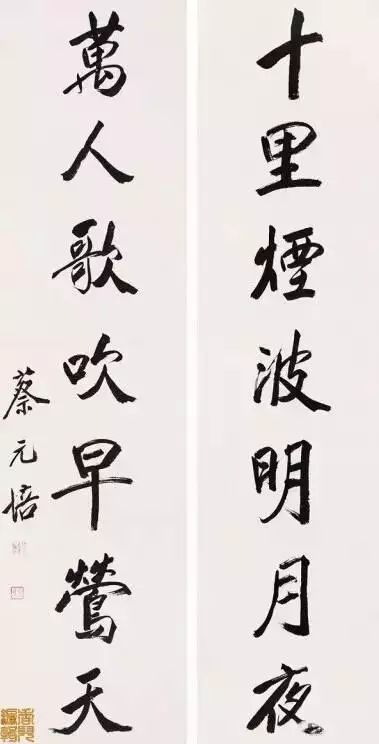 十里煙波明月夜
萬人歌吹早鶯天
蔡元培